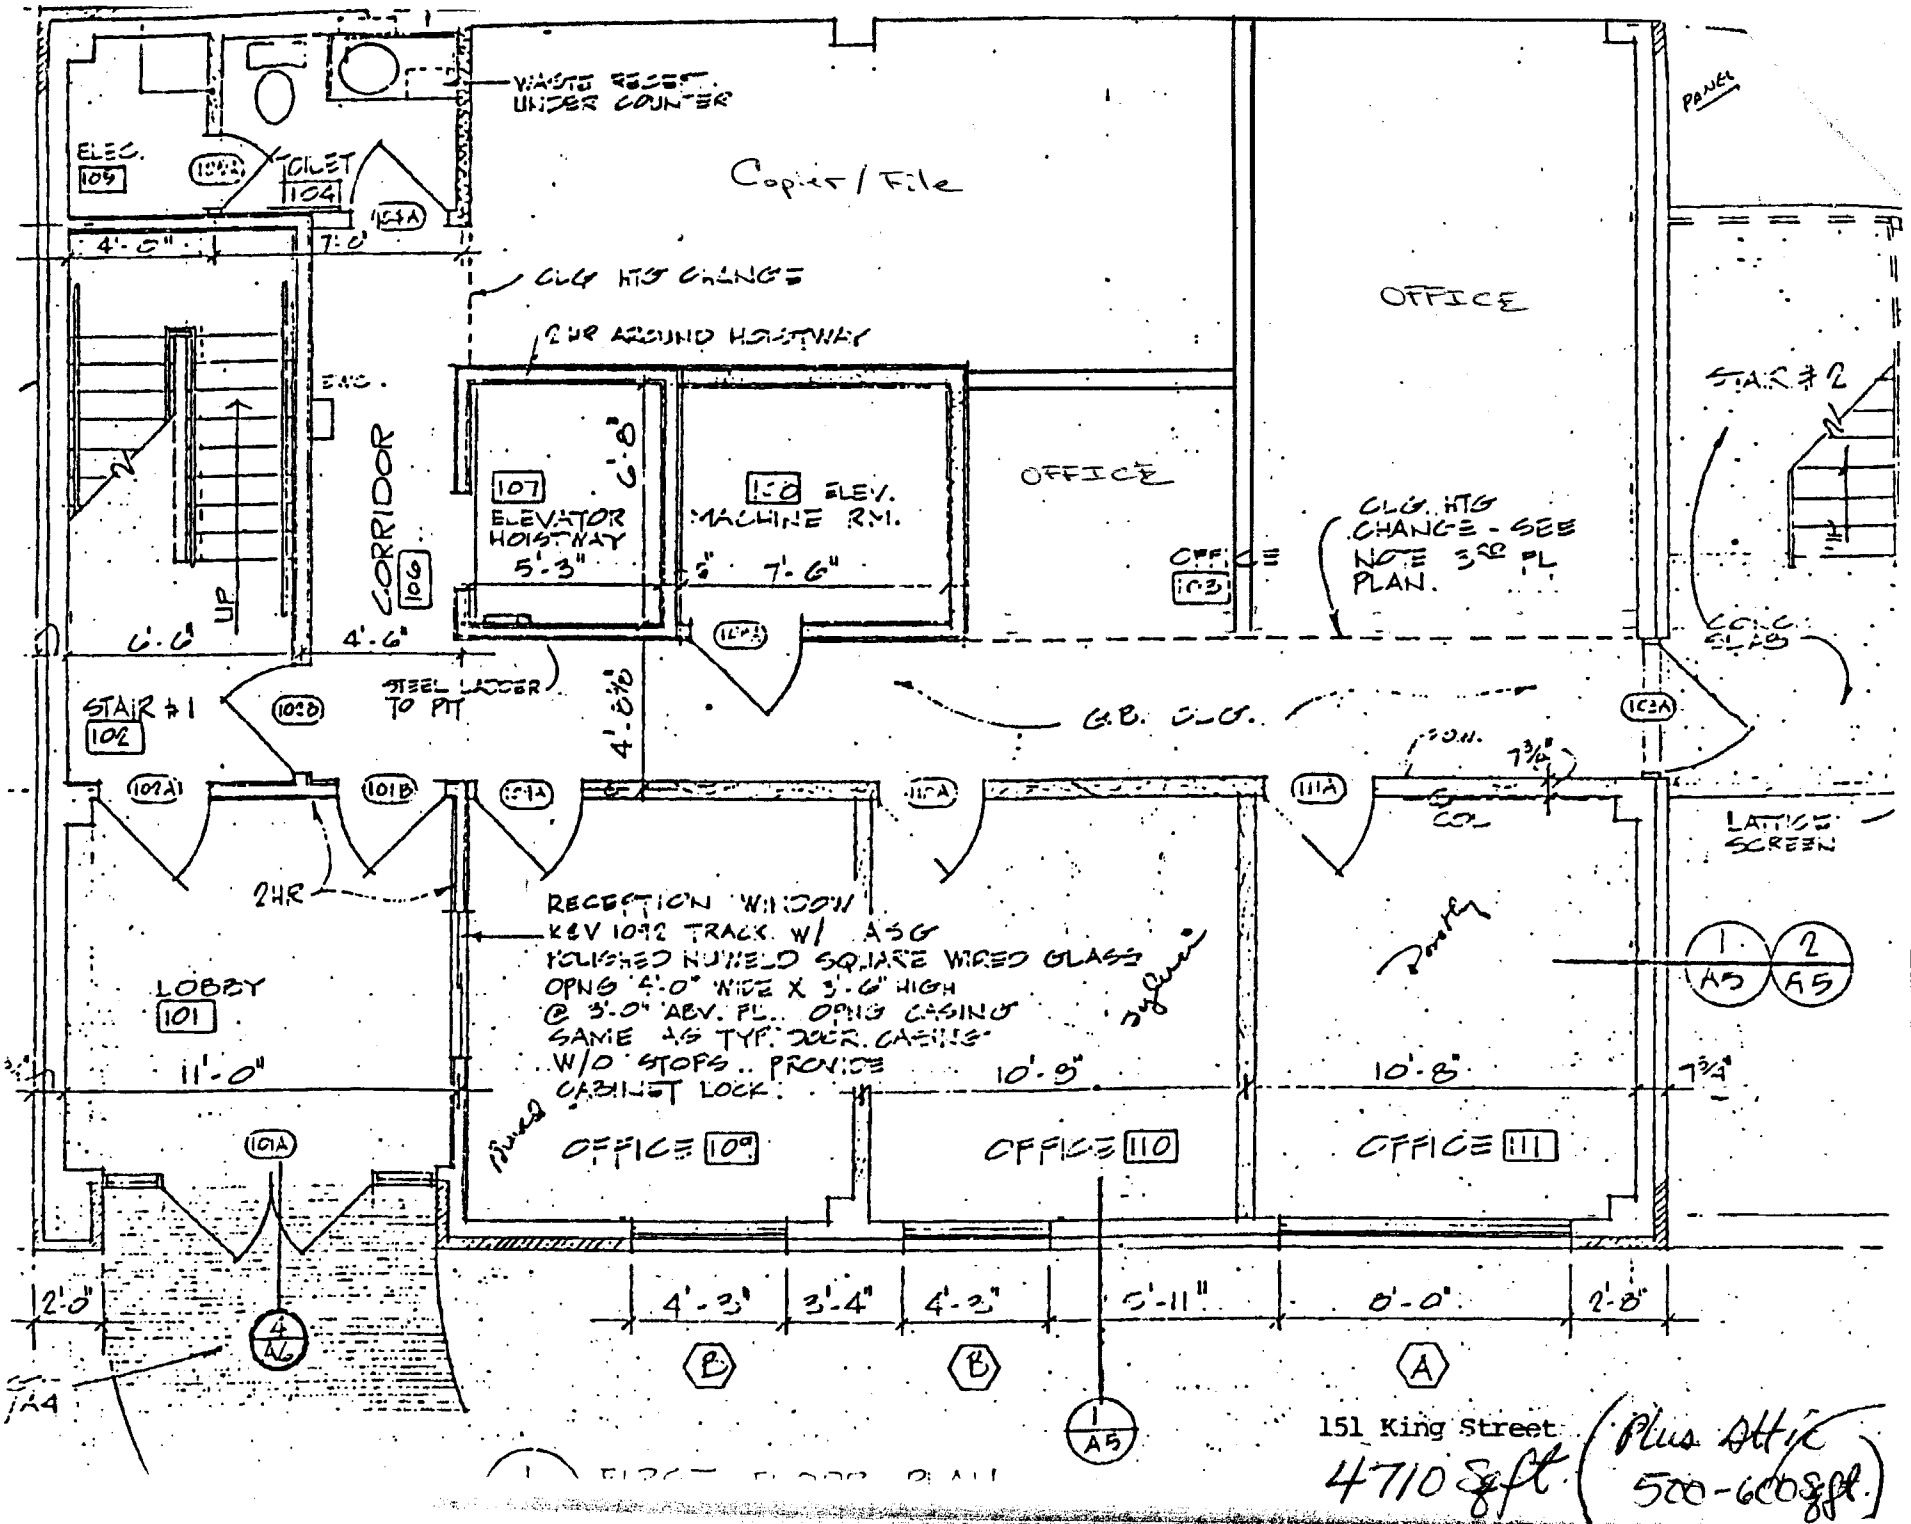 WASTE RECEPT.
UNDER COUNTER
PANEL
ELEC.
105
105A
TOILET
104
104A
Copier / File
4'-0"
7'-0"
CLG HTG CHANGE
OFFICE
2 HR AROUND HOISTWAY
EWC.
STAIR #2
CORRIDOR
106
107
ELEVATOR
HOISTWAY
5'-3"
6'-8"
ELEV.
MACHINE RM.
7'-6"
OFFICE
OFFICE
103
CLG. HTG
CHANGE - SEE
NOTE 3RD FL
PLAN.
UP
6'-6"
4'-6"
CONC.
SLAB
STAIR #1
102
102B
STEEL LADDER
TO PIT
4'-8 1/8"
G.B. CLG.
103A
7 3/4"
102A
101B
109A
110A
111A
COL
LATTICE
SCREEN
2HR
RECEPTION WINDOW
K&V 1092 TRACK W/ ASG
POLISHED NUWELD SQUARE WIRED GLASS
OPNG 4'-0" WIDE X 3'-6" HIGH
@ 3'-0" ABV. FL.. OPNG CASING
SAME AS TYP. DOOR CASING
W/O STOPS.. PROVIDE
CABINET LOCK.
Dorothy
1
A5
2
A5
LOBBY
101
11'-0"
10'-8"
10'-8"
7 3/4"
101A
OFFICE 109
OFFICE 110
OFFICE 111
2'-0"
4'-3"
3'-4"
4'-3"
5'-11"
8'-0"
2'-8"
4
A6
B
B
A
1
A5
151 King Street
4710 Sq ft. (Plus Attic
500-600 Sq ft.)
1 FIRST FLOOR PLAN